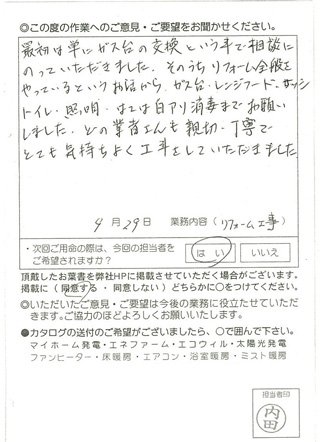 ◎この度の作業へのご意見・ご要望をお聞かせください。
最初は単にガス台の交換という事で相談に
のっていただきました。そのうちリフォーム全般を
やっているというお話から、ガス台・レンジフード・サッシ
トイレ・照明・はては白アリ消毒までお願い
しました。どの業者さんも親切・丁寧で
とても気持ちよく工事をしていただきました
4月29日 業務内容(リフォーム工事)
・次回ご用命の際は、今回の担当者を
ご希望されますか?
はい いいえ
頂戴したお葉書を弊社HPに掲載させていただく場合がございます。
掲載に(同意する・同意しない)どちらかに○をつけてください。
◎いただいたご意見・ご要望は今後の業務に役立たせていただ
きます。ご協力のほどよろしくお願いいたします。
●カタログの送付のご希望がございましたら、○で囲んで下さい。
マイホーム発電・エネファーム・エコウィル・太陽光発電
ファンヒーター・床暖房・エアコン・浴室暖房・ミスト暖房
担当者印
内田